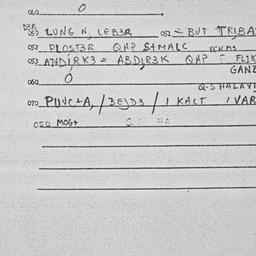 040 O
DER
050 LUNG N, LEB3R 051 = BUT TRIBA
052 PLOST3R QAP S+MALC VENMS
053 ANDIRK3 = ABDIR3K QAP = FLIK
GANZ
060 O
Q-SHALAVI
070 PUNC+A, /3EJD3 / 1 KACT 1 VAR
080 MOG+